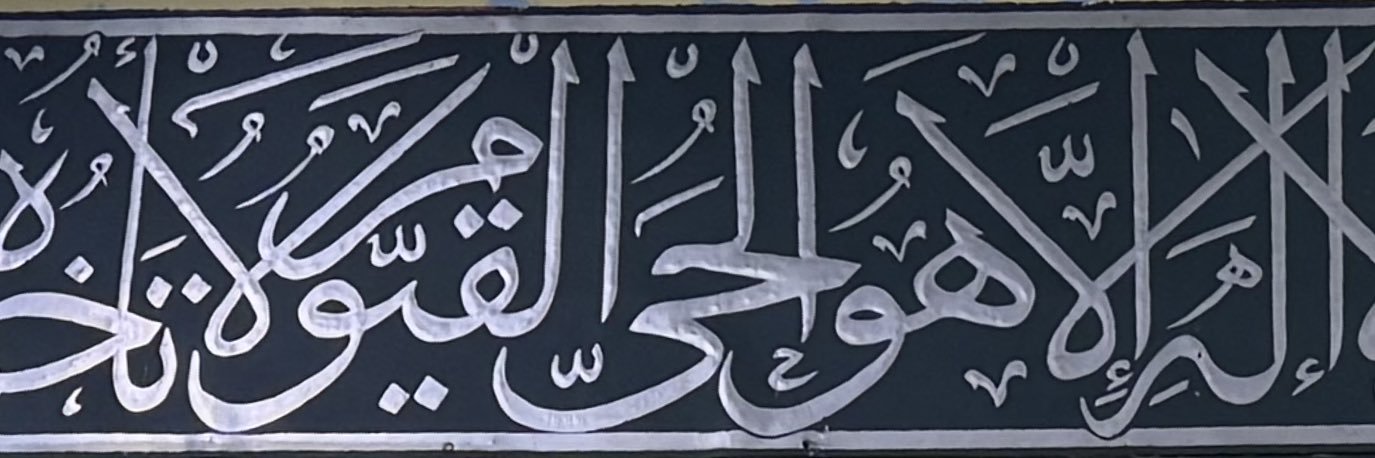 لَا إِلٰهَ إِلَّا هُوَ الْحَيُّ الْقَيُّومُ لَا تَأْخُذُهُ